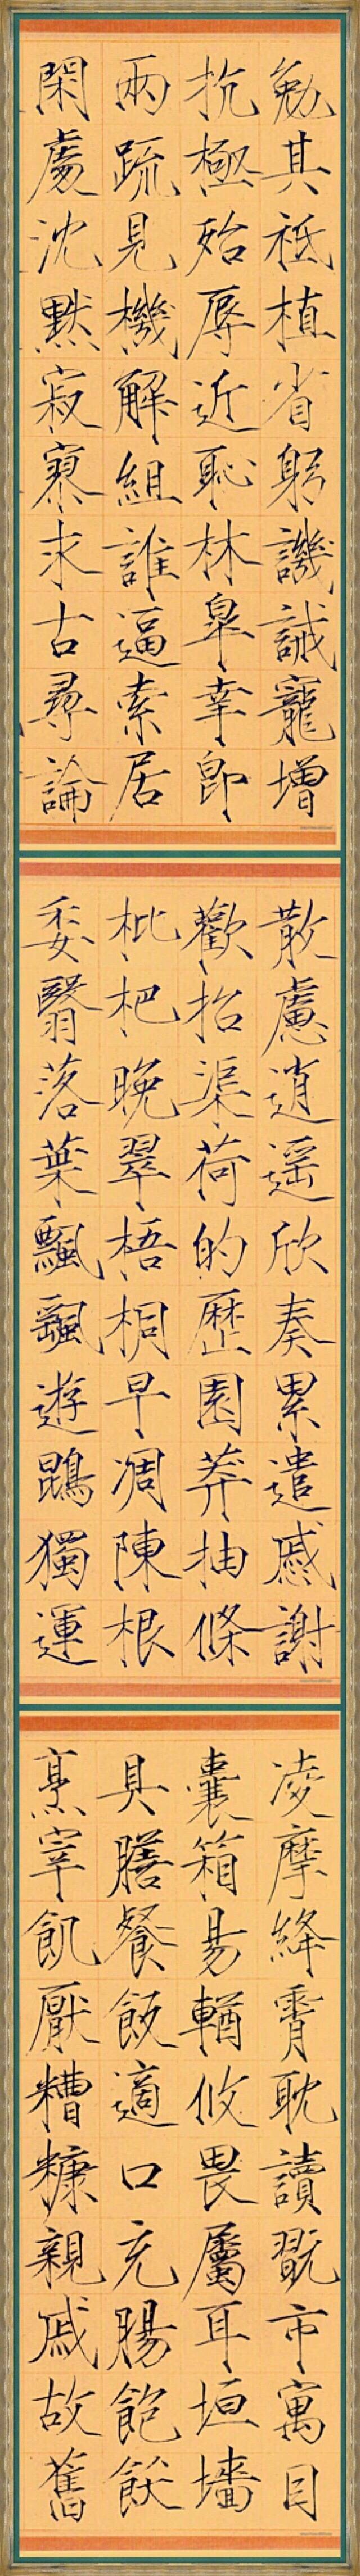 勉其祗植省躬譏誡寵增
抗極殆辱近恥林皐幸即
兩疏見機解組誰逼索居
閑處沈默寂寥求古尋論
散慮逍遥欣奏累遣慼謝
歡招渠荷的歷園莽抽條
枇杷晚翠梧桐早凋陳根
委翳落葉飄飖遊鵾獨運
凌摩絳霄耽讀翫市寓目
囊箱易輶攸畏屬耳垣墻
具膳餐飯適口充腸飽飫
烹宰飢厭糟糠親戚故舊